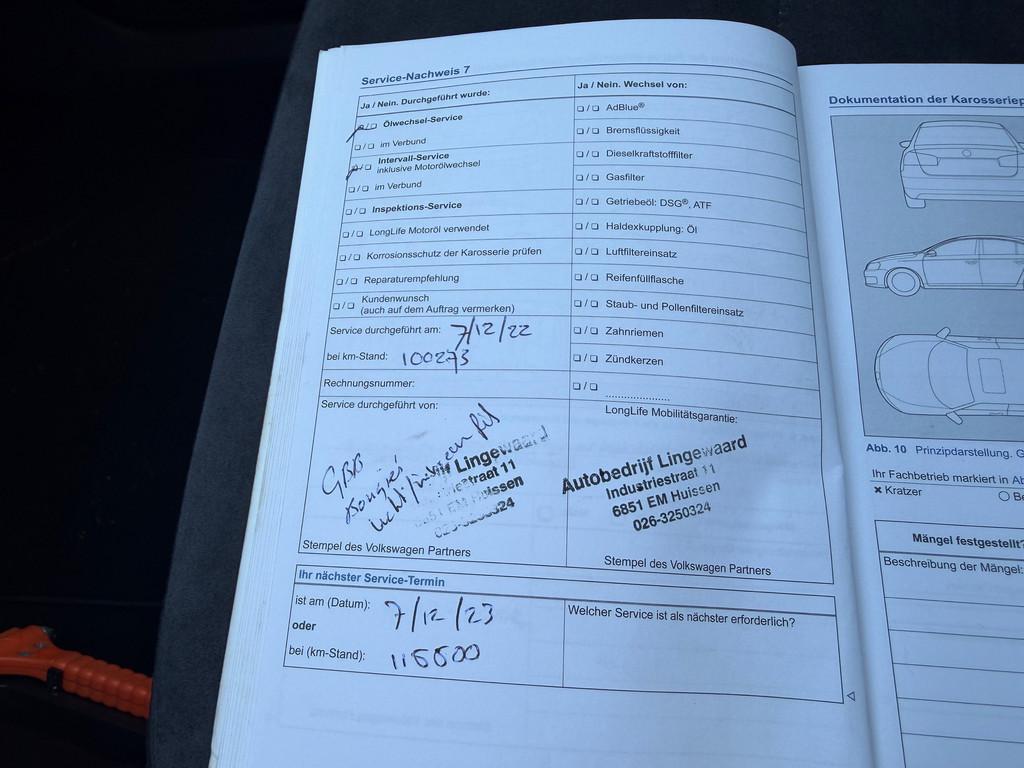 Service-Nachweis 7
Ja / Nein. Durchgeführt wurde:
❏ / ❏ Ölwechsel-Service
❏ / ❏ im Verbund
❏ / ❏ Intervall-Service
inklusive Motorölwechsel
❏ / ❏ im Verbund
❏ / ❏ Inspektions-Service
❏ / ❏ LongLife Motoröl verwendet
❏ / ❏ Korrosionsschutz der Karosserie prüfen
❏ / ❏ Reparaturempfehlung
❏ / ❏ Kundenwunsch
(auch auf dem Auftrag vermerken)
Service durchgeführt am: 7/12/22
bei km-Stand: 100273
Rechnungsnummer:
Service durchgeführt von:
GBB
Lingewaard
11
6851 EM Huissen
026-3250324
Stempel des Volkswagen Partners
Ja / Nein. Wechsel von:
❏ / ❏ AdBlue®
❏ / ❏ Bremsflüssigkeit
❏ / ❏ Dieselkraftstofffilter
❏ / ❏ Gasfilter
❏ / ❏ Getriebeöl: DSG®, ATF
❏ / ❏ Haldexkupplung: Öl
❏ / ❏ Luftfiltereinsatz
❏ / ❏ Reifenfüllflasche
❏ / ❏ Staub- und Pollenfiltereinsatz
❏ / ❏ Zahnriemen
❏ / ❏ Zündkerzen
❏ / ❏ .....................
LongLife Mobilitätsgarantie:
Autobedrijf Lingewaard
Industriestraat 11
6851 EM Huissen
026-3250324
Stempel des Volkswagen Partners
Ihr nächster Service-Termin
ist am (Datum): 7/12/23
oder
bei (km-Stand): 115000
Welcher Service ist als nächster erforderlich?
Dokumentation der Karosseriep
Abb. 10 Prinzipdarstellung. G
Ihr Fachbetrieb markiert in Ab
× Kratzer
○ Be
Mängel festgestellt?
Beschreibung der Mängel: